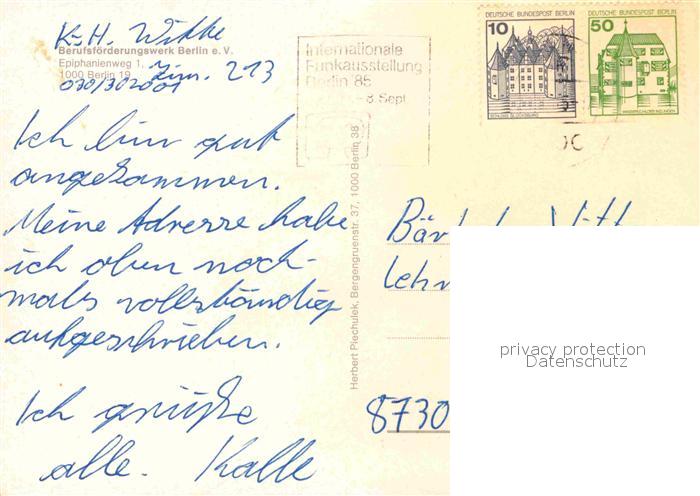 K.-H. Witke
Berufsförderungswerk Berlin e.V.
Epiphanienweg 1,
1000 Berlin 19 Zim. 213
030/302001
Ich bin gut
angekommen.
Meine Adresse habe
ich oben noch-
mals vollständig
aufgeschrieben.
Ich grüße
alle. Kalle
Internationale
Funkausstellung
Berlin '85
8. Sept.
Herbert Piechulek, Bergengruenstr. 37, 1000 Berlin 38
DEUTSCHE BUNDESPOST BERLIN
10
SCHLOSS GLÜCKSBURG
DEUTSCHE BUNDESPOST BERLIN
50
WASSERSCHLOSS INZLINGEN
8730
privacy protection
Datenschutz